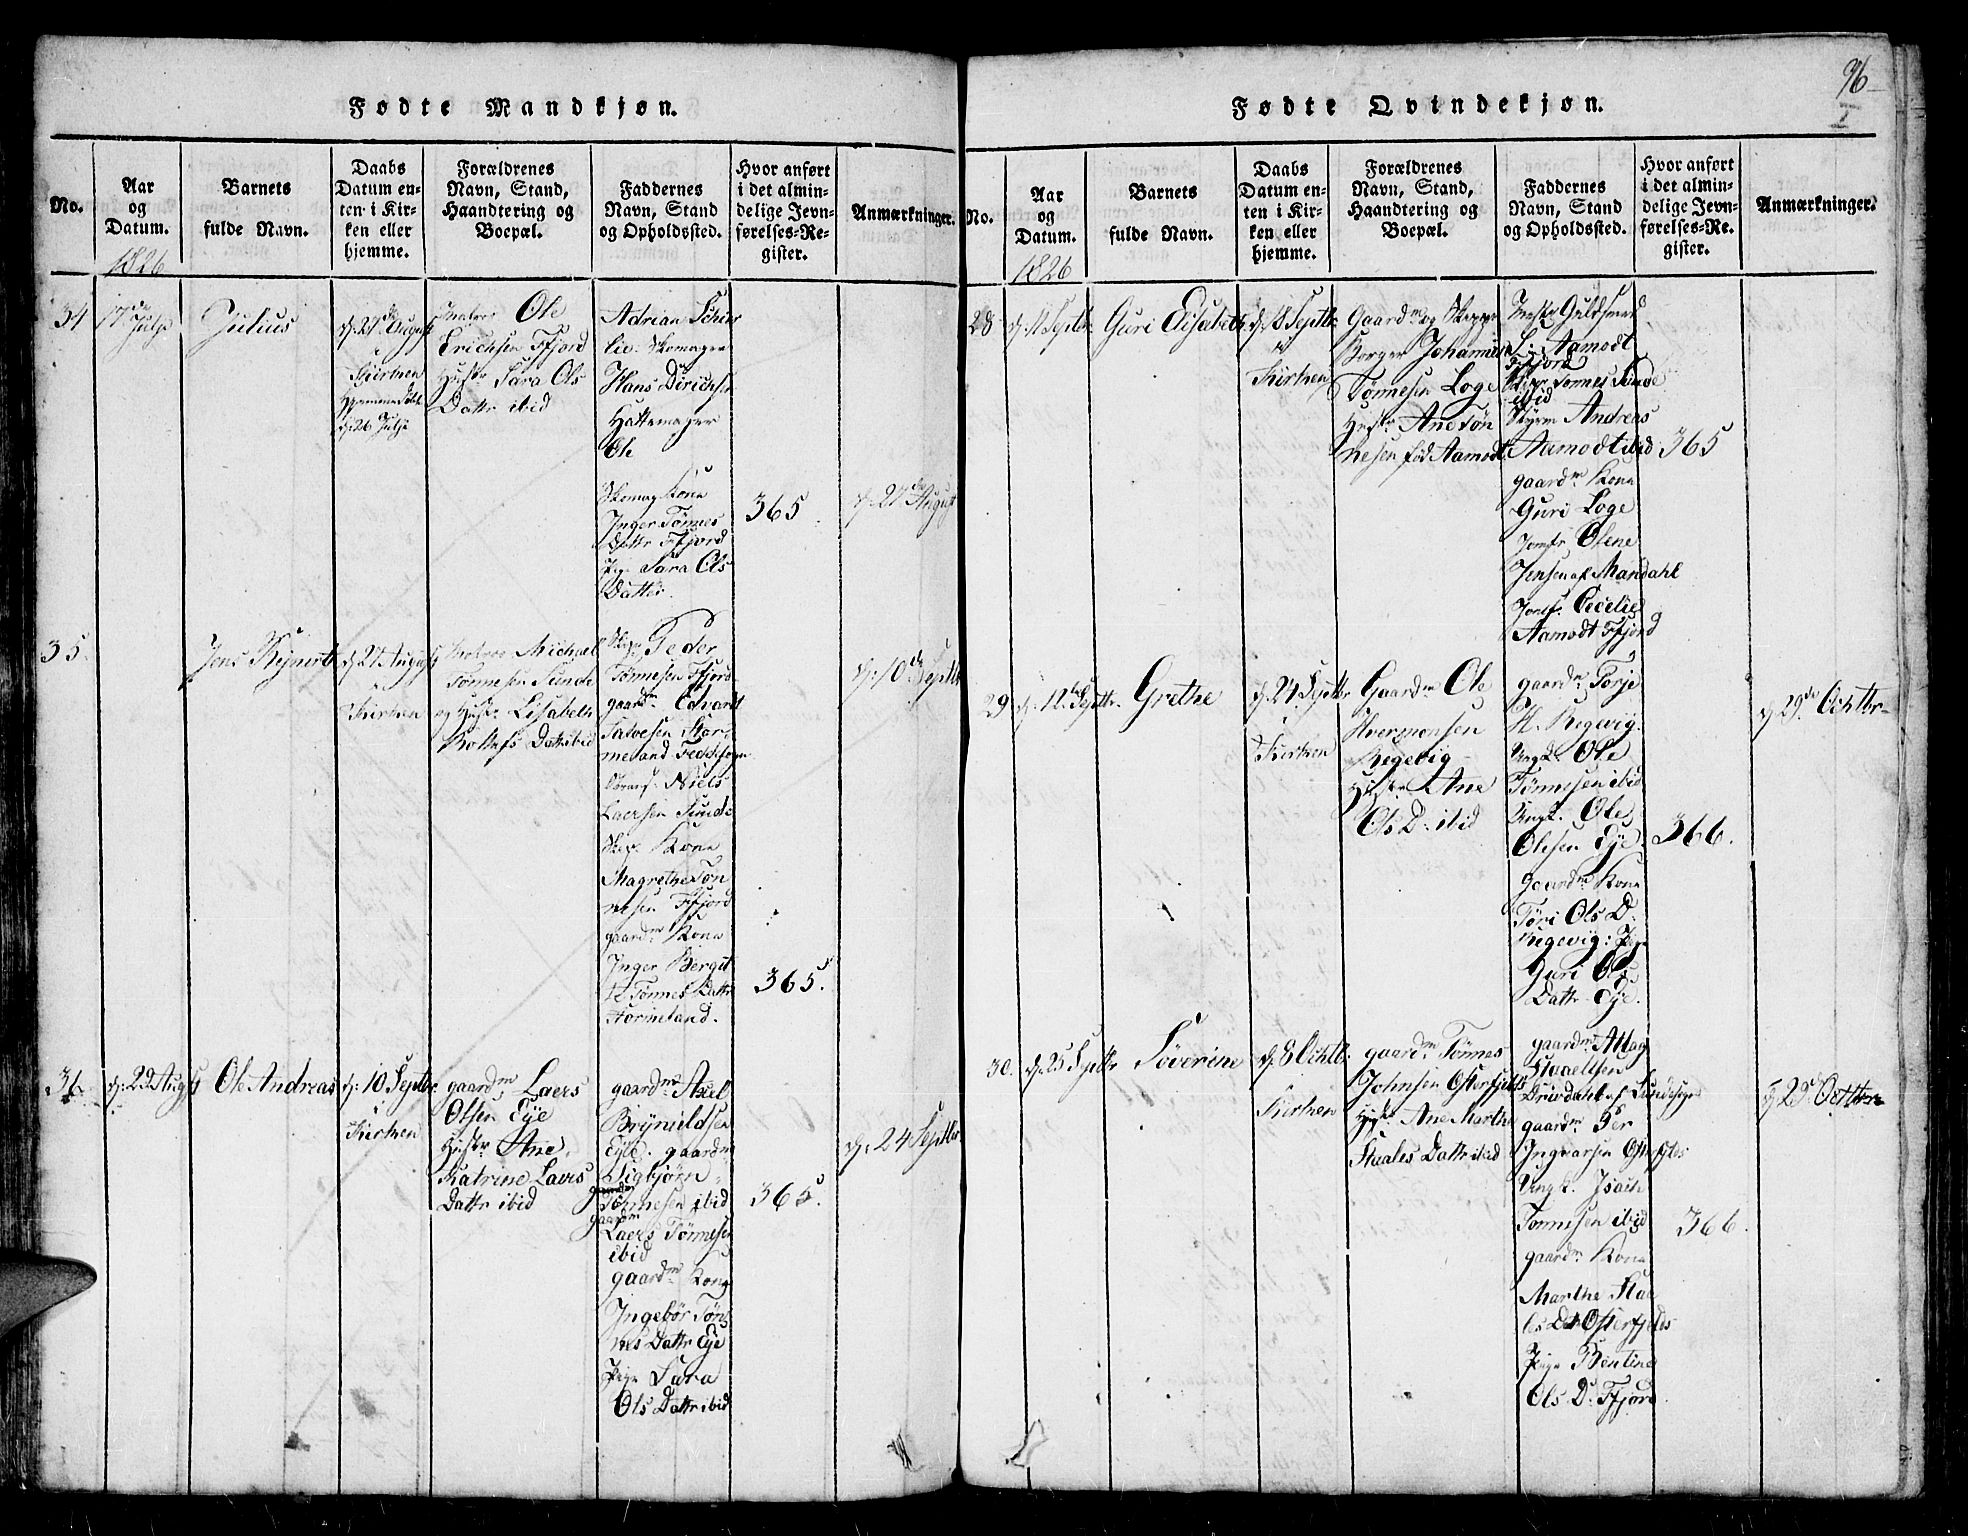 96
Fødte Mandkjøn.
No.
Aar
og
Datum.
1826
Barnets
fulde Navn.
Daabs
Datum en-
ten i Kir-
ken eller
hjemme.
Forældrenes
Navn, Stand,
Haandtering og
Boepæl.
Faddernes
Navn, Stand
og Opholdssted.
Hvor anført
i det almin-
delige Jevn-
førelses-Re-
gister.
Anmærkninger.
34
17de
Julji
Julius
d: 27de August
i Kirken
d: 26 Julji
Ole
Erichsen Ffjord
Hustr Sara Ols
Dattr ibid
Adrian
Skomager
Hans Dirichsen
Hattemager
Ole
Skomag Kone
Inger Tønnes
Dattr Ffjord
Pige Sara Ols
Datter.
365
d: 27de August
35.
Jens Rejnert
d: 27 August
i Kirken
Michael
Tønnesen Sunde
og Hustr Lisabeth
Rollefs Dattr ibid
Peder
Tønnesen Ffjord
gaardm Edvardt
Salvesen Stor-
meland Feddesogn
Niels
Laersen Sunde
Kone
Magrethe Tøn
nesen Ffjord
gaardm Kone
Inger Bergit
te Tønnes Dattr
Stormeland.
365.
d: 10de Septbr
36
d: 22 Augst
Ole Andreas
d: 10 Septbr
i
Kirken
gaardm Laers
Olsen Eye
Hustr Ane
Katrine Laers
Dattr ibid
gaardm Axel
Brynildsen
Eye. gaardm
Sigbjørn
Tønnesen ibid
gaardm
Laers Tønnesen
ibid
gaardm Kone
Ingebør Tøn
nes Dattr Eye
Pige Sara
Ols Dattr ibid
365.
d: 24 Septbr
Fødte Qvindekjøn.
No.
Aar
og
Datum.
1826
Barnets
fulde Navn.
Daabs
Datum en-
ten i Kir-
ken eller
hjemme.
Forældrenes
Navn, Stand,
Haandtering og
Boepæl.
Faddernes
Navn, Stand
og Opholdssted.
Hvor anført
i det almin-
delige Jevn-
førelses-Re-
gister.
Anmærkninger.
28
Septbr
Guri Elisabeth
Septbr
i
Kirken
Gaardm og Skipper
Borger Johannes
Tønnesen Loge
Hustr Ane Tøn
nesen fød Aamodt
Guldsmed
Aamodt
Ffjord
Tønnes Sunde
ibid
Andreas
Aamodt ibid
gaardm Kone
Guri Loge
Jomfr Olene
Jensen af Mandahl
Jomfr Cecelie
Aamodt Ffjord
365
29
d: 12te Septbr.
Grethe
d: 24 Septbr
i Kirken
Gaardm Ole
Hvermonsen
Regevig
Hustr Ane
Ols D: ibid
gaardm Torje
H. Regevig.
Ungk. Ole
Tønnesen ibid
Ungk. Ole
Olesen Eye.
gaardm Kone
Tøri Ols D:
Regevig: Pige
Guri Ols
Dattr Eye.
366.
d: 29de Ochtbr
30.
d: 25 Septbr
Søverine
d: 8 Ochtb:
i Kirken
gaardm Tønnes
Johnsen Osterfjelds
Hustr Ane Marthe
Staales Dattr ibid
gaardm Attag
Staaelsen
Drivdahl af Lundesogn
gaardm Per
Ingvarsen Osterfjelds
Ungk. Isach
Tønnesen ibid
gaardm Kone
Marthe Stae
les D Osterfjelds
Pige Bentine
Ols D: Ffjord
366.
d: 29de Ochtbr